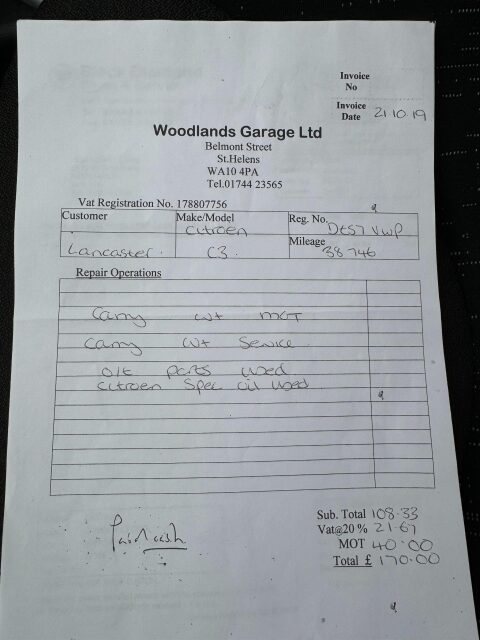 Invoice
No
Invoice
Date 21.10.19
Woodlands Garage Ltd
Belmont Street
St.Helens
WA10 4PA
Tel.01744 23565
Vat Registration No. 178807756
Customer Make/Model Reg. No. DE57 VWP
Citroen
Lancaster. C3. Mileage 38746
Repair Operations
Carry out MOT
Carry out Service
O/E parts used
Citroen Spec oil used
Paid cash
Sub. Total 108.33
Vat@20 % 21.67
MOT 40.00
Total £ 170.00